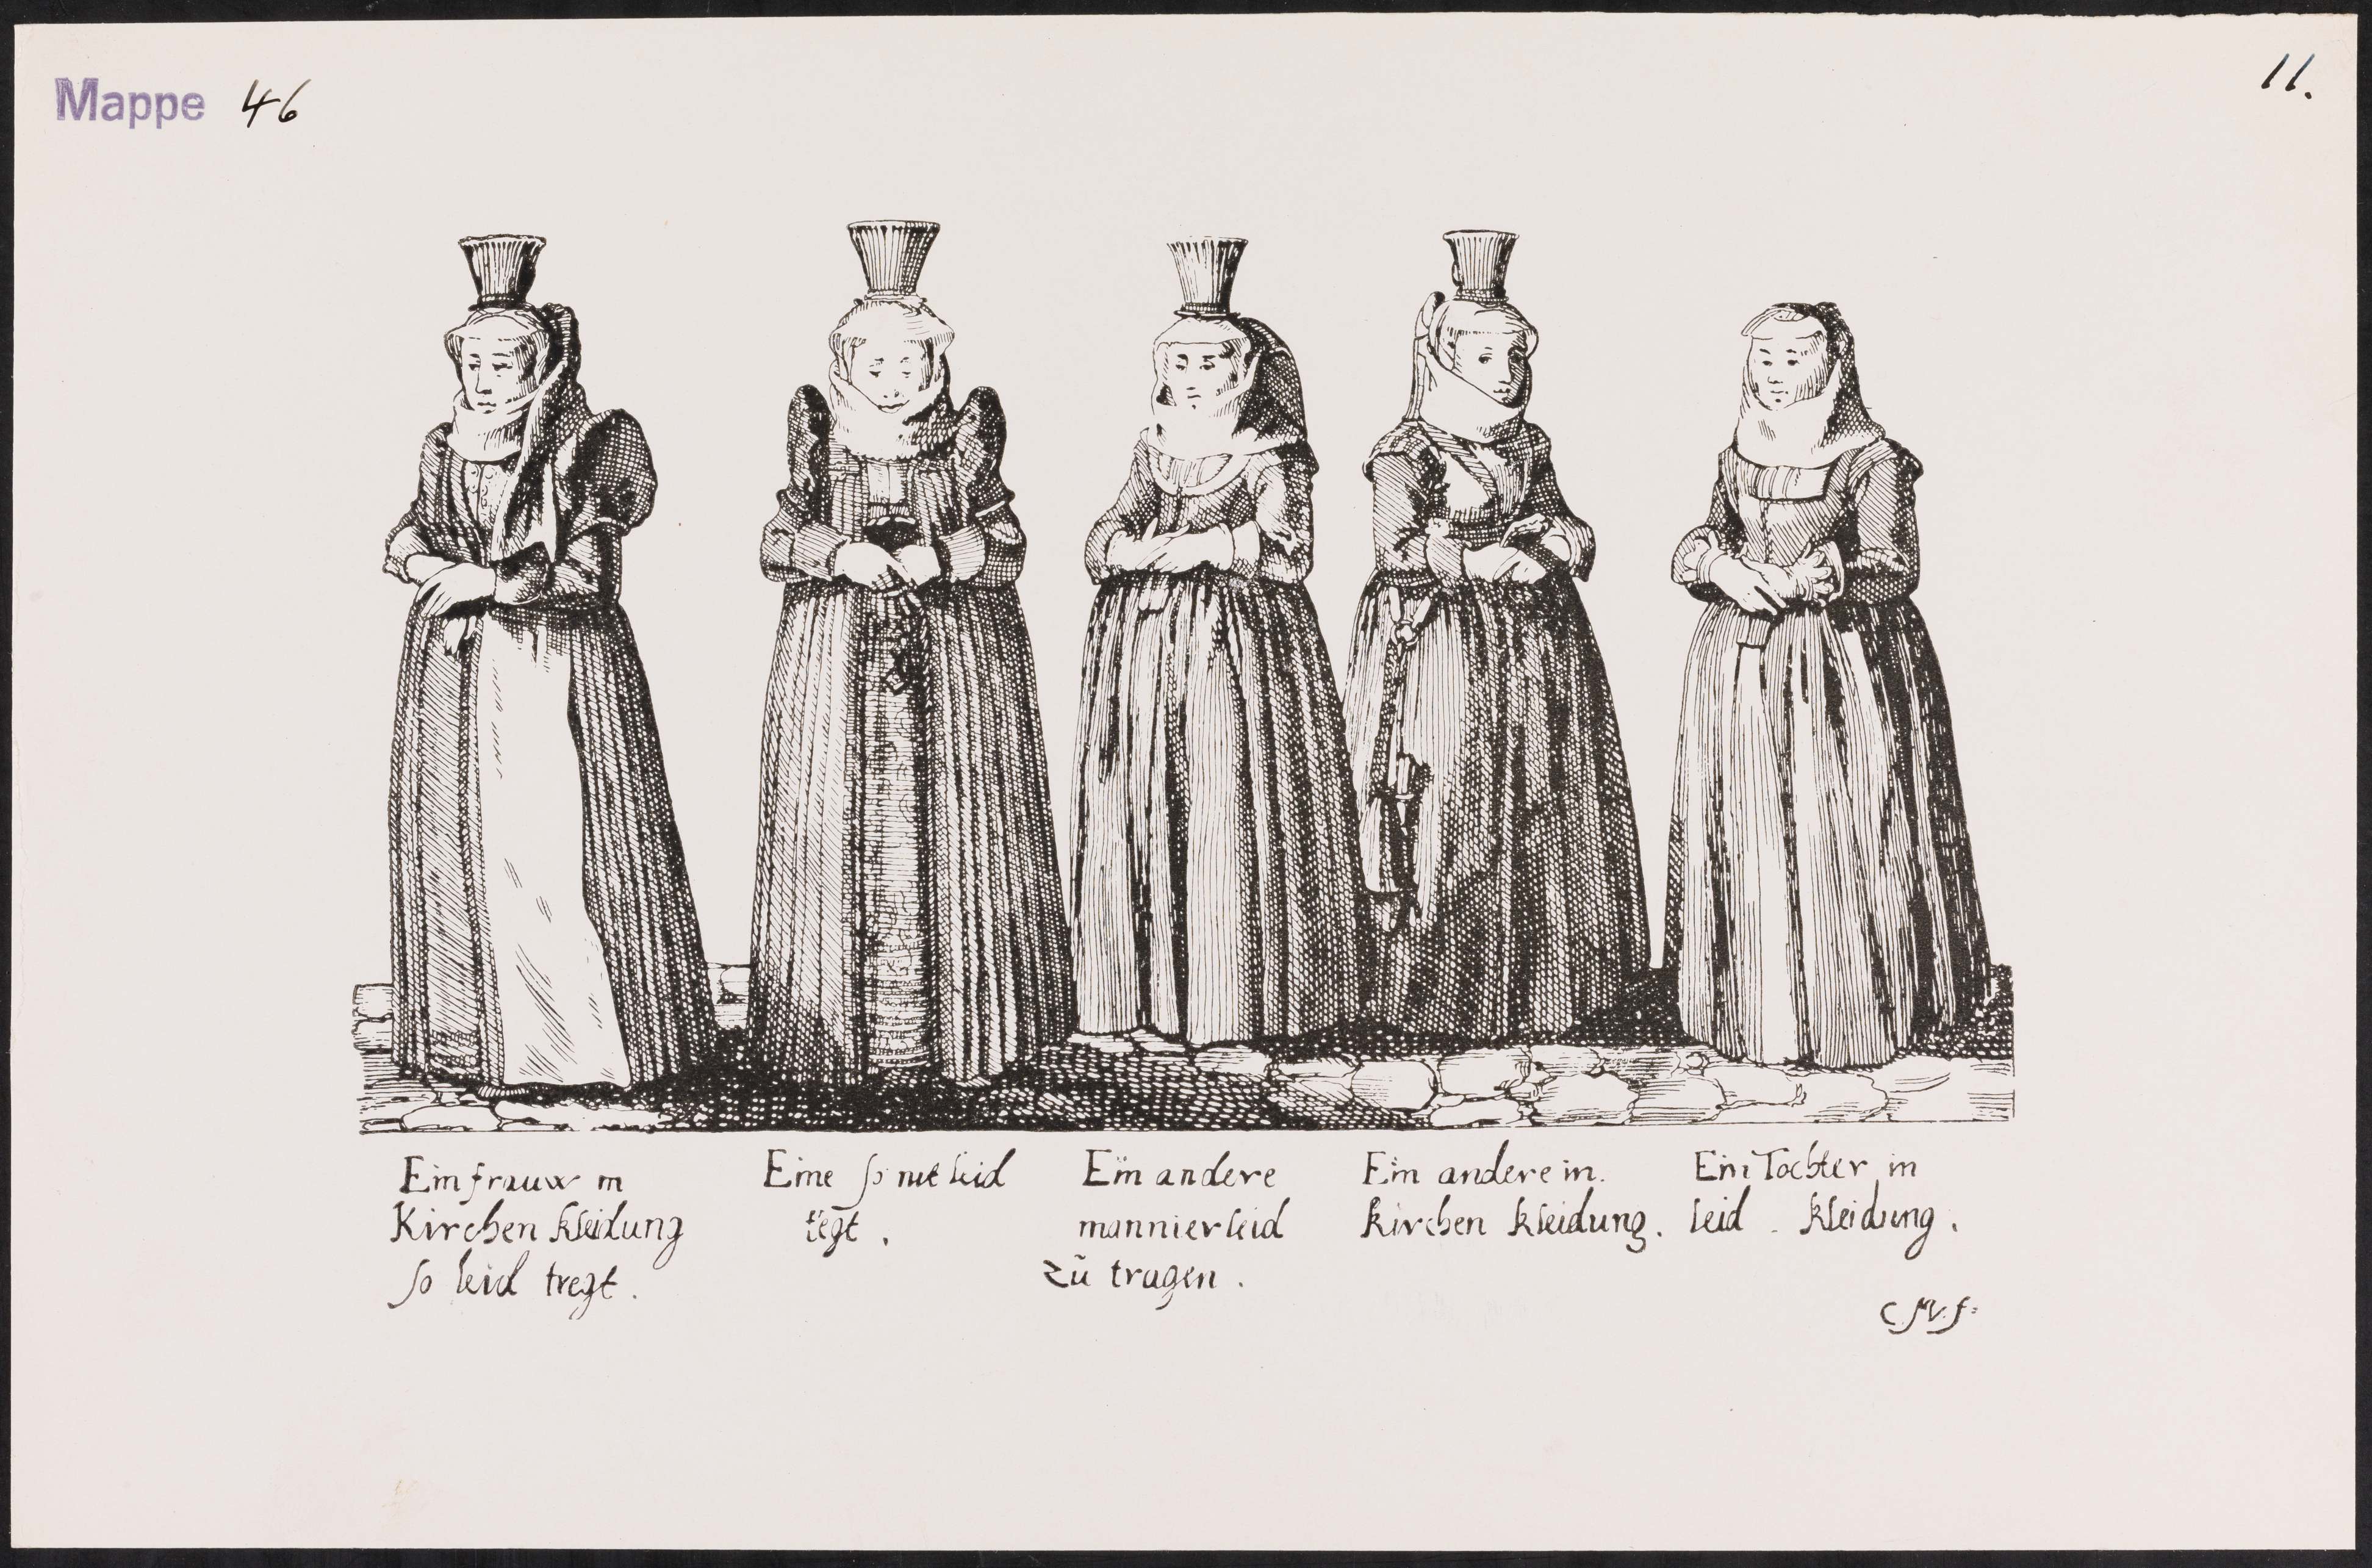 Mappe 46
11.
Ein frauw in
Kirchen kleidung
so leid tregt.
Eine so nit leid
tregt.
Ein andere
mannier leid
zu tragen.
Ein andere in.
kirchen kleidung.
Ein Tochter in
leid - kleidung.
C MV f: